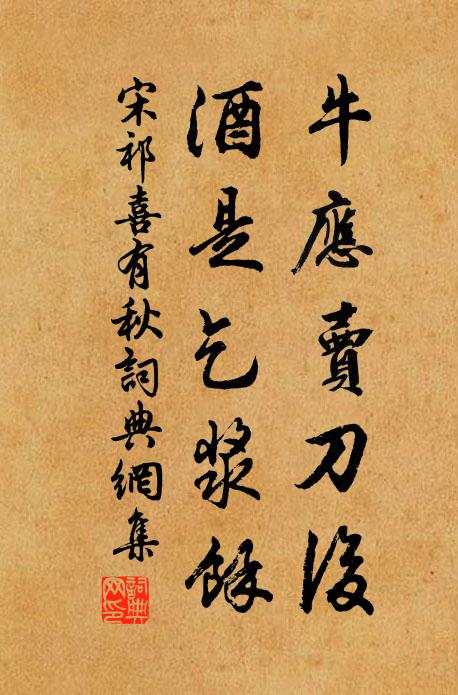 牛應賣刀後
酒是乞漿餘
宋祁喜有秋詞典網集
詞典網印